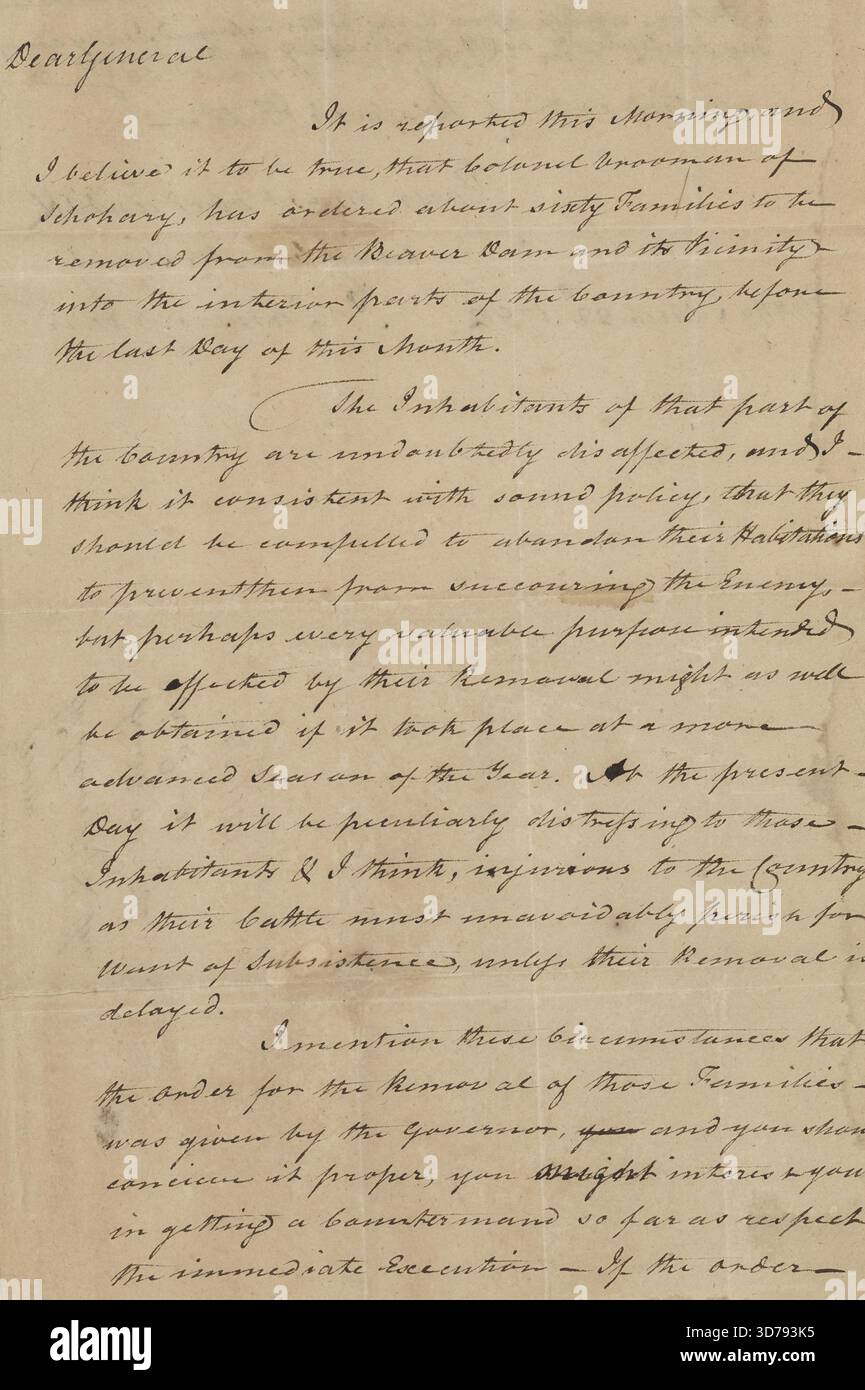 Dear General
It is reported this Morning, and
I believe it to be true, that Colonel Vrooman of
Schohary, has ordered about sixty Families to be
removed from the Beaver Dam and its Vicinity
into the interior parts of the Country, before
the last Day of this Month.
The Inhabitants of that part of
the Country are undoubtedly disaffected, and I -
think it consistent with sound policy, that they
should be compelled to abandon their Habitations
to prevent then from succouring the Enemy, -
but perhaps every valuable purpose intended
to be effected by their Removal might as well
be obtained if it took place at a more
advanced Season of the Year. At the present -
Day it will be peculiarly distressing to those -
Inhabitants & I think, injurious to the Country
as their Cattle must unavoidably perish for
Want of Subsistence, unless their Removal i
delayed.
I mention these Circumstances that
the order for the Removal of those Families -
was given by the Governor, you and you shou
conceive it proper, you might interest you
in getting a Countermand so far as respect
the immediate Execution - If the order -
alamy
Image ID: 3D793K5
www.alamy.com